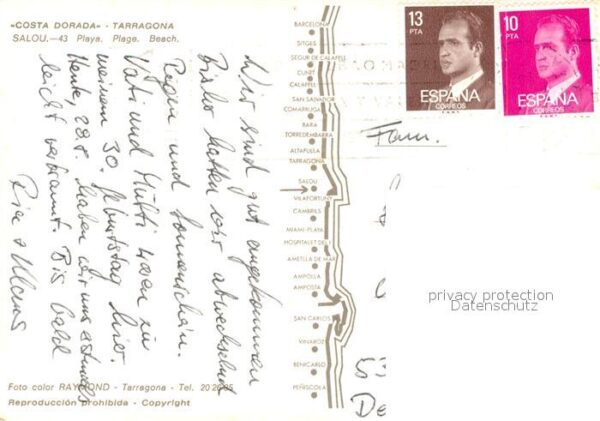 «COSTA DORADA» - TARRAGONA
SALOU.—43 Playa. Plage. Beach.
Wir sind gut angekommen
Bisher hatten wir abwechselnd
Regen und Sonnenschein.
Vati und Mutti waren zu
meinem 30. Geburtstag hier.
Heute, 28.8. haben wir uns erstmals
leicht verbrannt. Bis bald
Ria & Klaus
BARCELONA
SITGES
SEGUR DE CALAFELL
CUNIT
CALAFELL
SAN SALVADOR
COMARRUGA
BARA
TORREDEMBARRA
ALTAFULLA
TARRAGONA
SALOU
VILAFORTUNY
CAMBRILS
MIAMI-PLAYA
HOSPITALET DEL I.
AMETLLA DE MAR
AMPOLLA
AMPOSTA
SAN CARLOS
VINAROZ
BENICARLO
PEÑISCOLA
13
PTA
ESPAÑA
CORREOS
10
PTA
ESPAÑA
CORREOS
Fam.
privacy protection
Datenschutz
53
De
Foto color RAYMOND - Tarragona - Tel. 20
Reproducción prohibida - Copyright